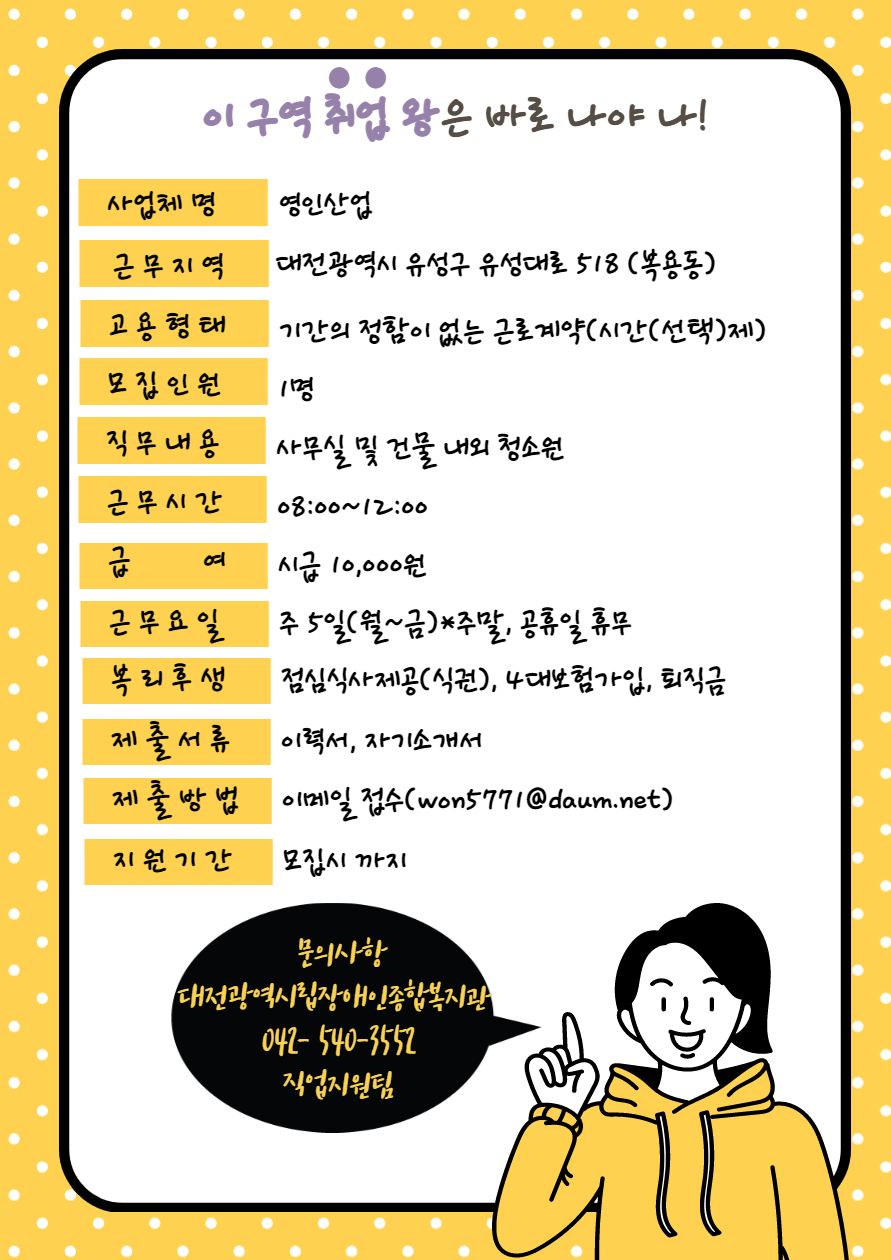 이 구역 취업 왕은 바로 나야 나!
사업체 명 영인산업
근무지역 대전광역시 유성구 유성대로 518 (복용동)
고용형태 기간의 정함이 없는 근로계약(시간(선택)제)
모집인원 1명
직무내용 사무실 및 건물 내외 청소원
근무시간 08:00~12:00
급 여 시급 10,000원
근무요일 주 5일(월~금)*주말, 공휴일 휴무
복리후생 점심식사제공(식권), 4대보험가입, 퇴직금
제출서류 이력서, 자기소개서
제출방법 이메일 접수(won5771@daum.net)
지원기간 모집시 까지
문의사항
대전광역시립장애인종합복지관
042- 540-3552
직업지원팀